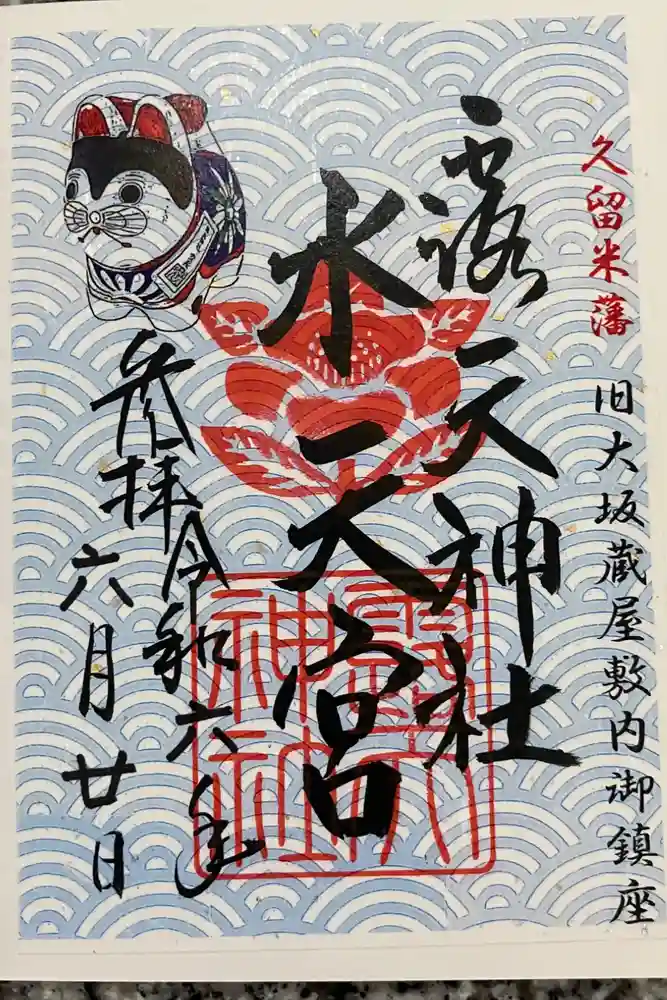 久留米藩 旧大坂蔵屋敷内御鎮座
露天神社
水天宮
参拝 令和六年
六月廿日
露天神社